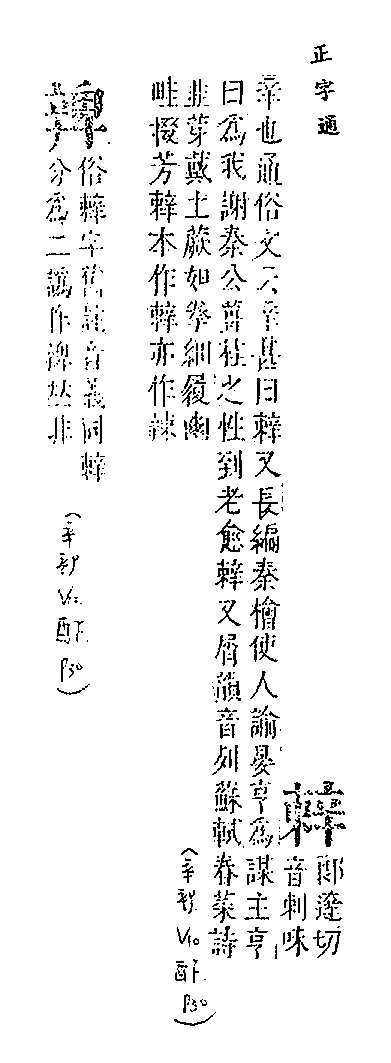 正字通
辢
郎達切
音剌味
辛也通俗文云辛甚曰辢又長編秦檜使人諭晏亨為謀主亨
曰為我謝秦公薑桂之性到老愈辢又屑韻音列蘇軾春菜詩
韭芽戴土蕨如拳細履幽
畦掇芳辢本作辢亦作辣
(辛部 V10 酉下 P30)
俗辢字舊註音義同辢
分為二譌作 並非
(辛部 V10 酉下 P30)